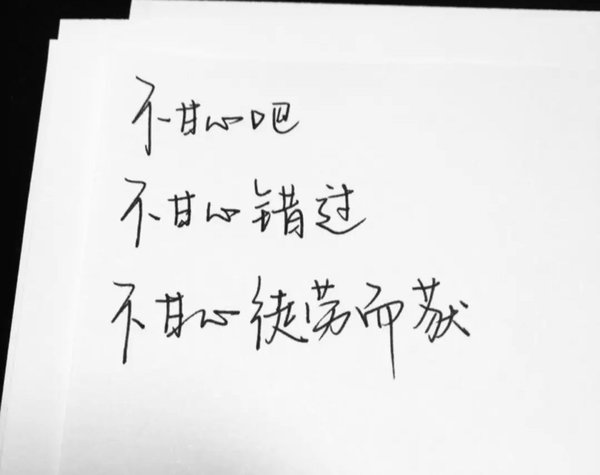 不甘心吧
不甘心错过
不甘心徒劳而获